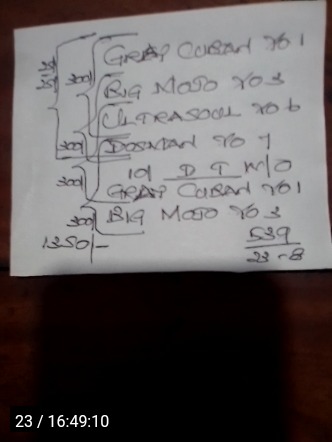 GRAY CUBAN 701
300 BIG MOJO 703
ULTRASOUL 706
300 DOSMAN 707
101 D T M/O
300 GRAY CUBAN 701
300 BIG MOJO 703
1350/- 539
23-8
23 / 16:49:10